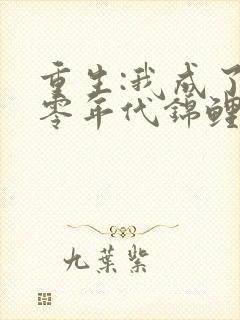 重生:我成了
零年代錦鯉
九葉紫